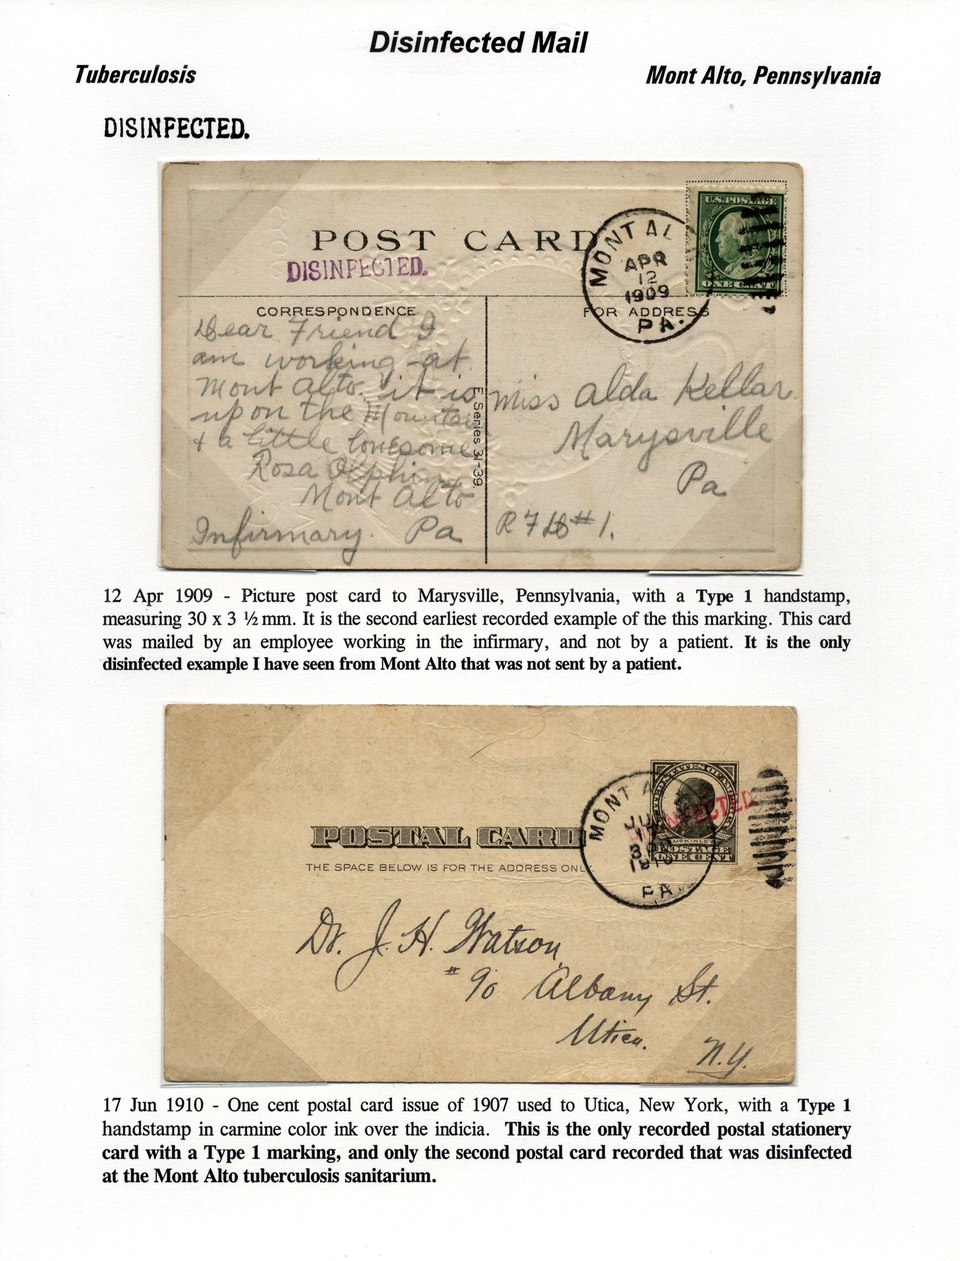 Disinfected Mail
Tuberculosis
Mont Alto, Pennsylvania
DISINFECTED.
U.S. POSTAGE
ONE CENT
POST CARD
DISINFECTED.
MONT AL
APR
12
1909
PA.
CORRESPONDENCE
FOR ADDRESS
Dear Friend I
am working at
Mont Alto. it is
up on the Mountain
+ a little lonesome
Rosa
Mont Alto
Infirmary. Pa
E Series 31-39
Miss Alda Kellar.
Marysville
Pa
#1.
12 Apr 1909 - Picture post card to Marysville, Pennsylvania, with a Type 1 handstamp,
measuring 30 x 3 ½ mm. It is the second earliest recorded example of the this marking. This card
was mailed by an employee working in the infirmary, and not by a patient. It is the only
disinfected example I have seen from Mont Alto that was not sent by a patient.
POSTAL CARD
THE SPACE BELOW IS FOR THE ADDRESS ONL
MONT A
PA
McKINLEY
POSTAGE
ONE CENT
Dr. J. H. Watson
# 90 Albany St.
Utica.
N.Y.
17 Jun 1910 - One cent postal card issue of 1907 used to Utica, New York, with a Type 1
handstamp in carmine color ink over the indicia. This is the only recorded postal stationery
card with a Type 1 marking, and only the second postal card recorded that was disinfected
at the Mont Alto tuberculosis sanitarium.